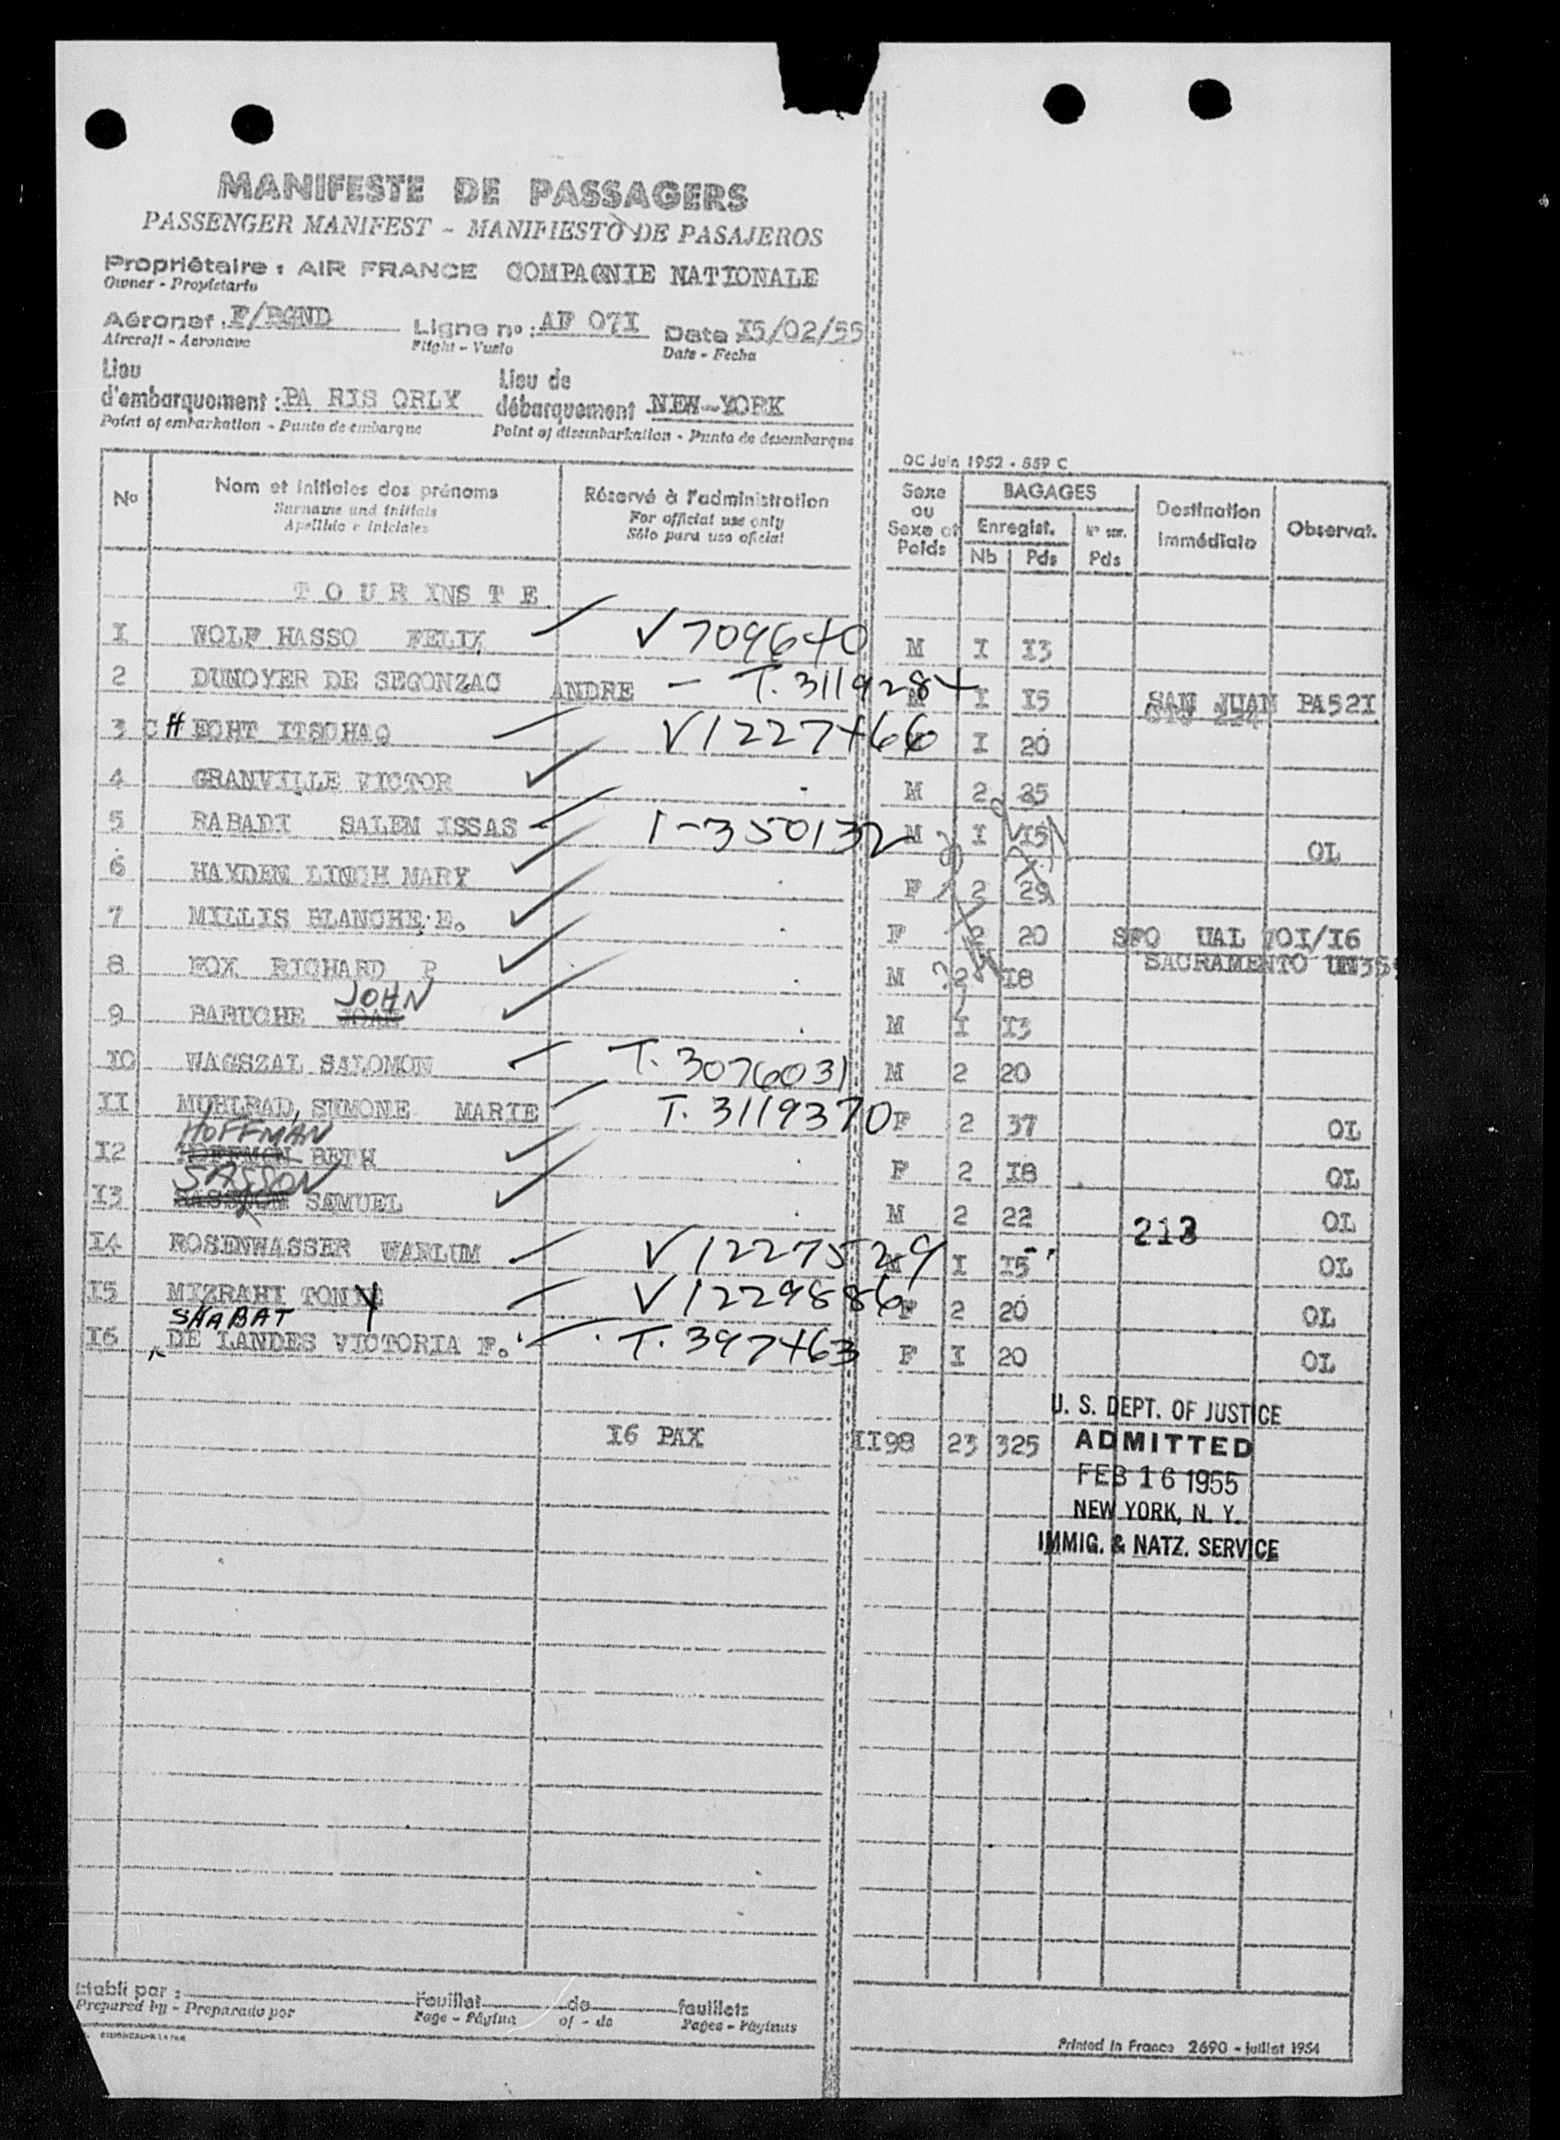 MANIFESTE DE PASSAGERS
PASSENGER MANIFEST - MANIFIESTO DE PASAJEROS
Propriétaire : AIR FRANCE COMPAGNIE NATIONALE
Owner - Propietario
Aéronef : F/BGND Ligne no : AF 07I Date I5/02/55
Aircraft - Aeronave Flight - Vuelo Date - Fecha
Lieu d'embarquement : PA RIS ORLY Lieu de débarquement NEW-YORK
Point of embarkation - Punto de embarque Point of disembarkation - Punto de desembarque
OC Juin 1952 - 559 C
No Nom et initiales des prénoms Réservé à l'administration Sexe ou Sexe et Poids BAGAGES Destination immédiate Observat.
Surname and initials For official use only Enregist.
Apellido e iniciales Sólo para uso oficial Nb Pds Pds
T O U R INS T E
I WOLF HASSO FELIX V 709640 M I I3
2 DUNOYER DE SEGONZAC ANDRE - T. 3119284 M I I5 SAN JUAN PA52I
3 CH ECHT ITSCHAQ V1227466 I 20
4 GRANVILLE VICTOR M 2 25
5 RABADI SALEM ISSAS I-350132 M I I5 OL
6 HAYDEN LINCH MARY F 2 29
7 MILLIS BLANCHE E. F 2 20 SFO UAL 70I/I6
8 FOX RICHARD P M 2 I8 SACRAMENTO
9 BARUCHE JOHN M I I3
I0 WAGSZAL SALOMON T. 3076031 M 2 20
II MUHLRAD SIMONE MARIE T. 3119370 F 2 37 OL
HOFFMAN
I2 BETH F 2 I8 OL
SASSON
I3 SAMUEL M 2 22 213 OL
I4 ROSENWASSER V 1227529 M I I5 OL
I5 MIZRAHI TONY V 1229886 F 2 20 OL
SHABAT
I6 DE LANDES VICTORIA F. T. 397463 F I 20 OL
I6 PAX II98 23 325
U. S. DEPT. OF JUSTICE
ADMITTED
FEB 16 1955
NEW YORK, N. Y.
IMMIG. & NATZ. SERVICE
Etabli par : Feuillet de feuillets
Prepared by - Preparado por Page - Página of - de Pages - Páginas
Printed in France 2690 - juillet 1954